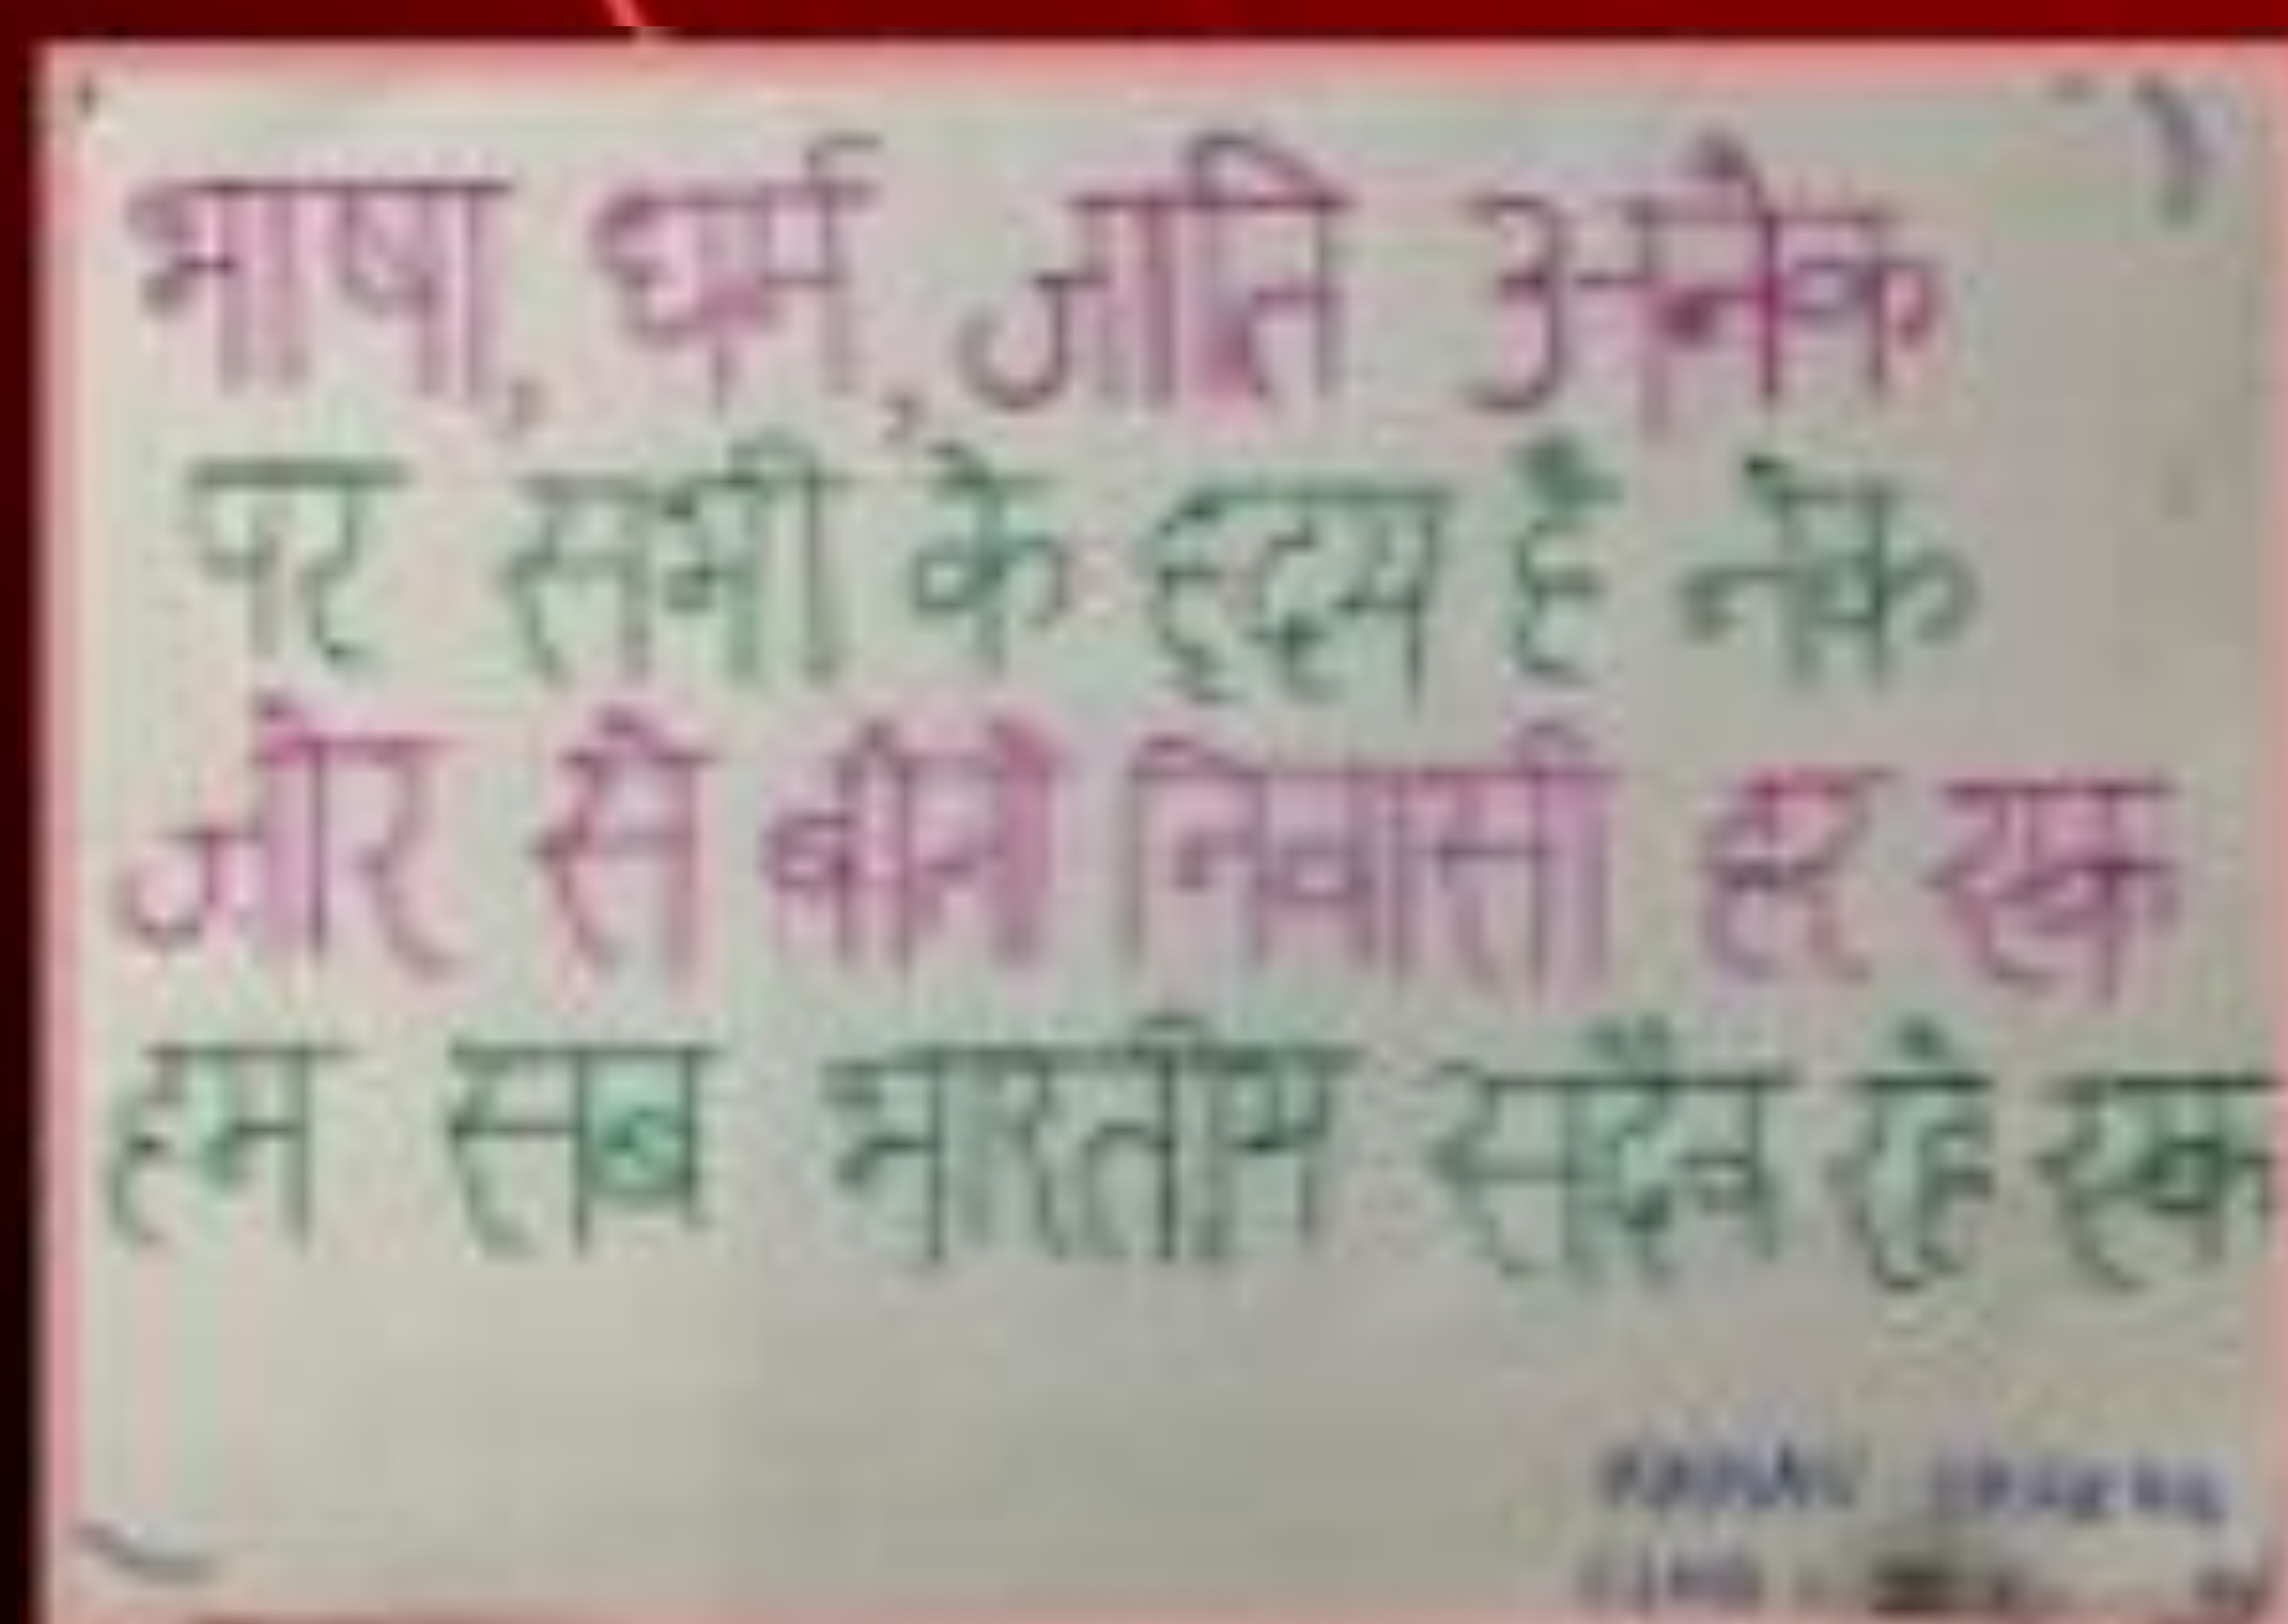 भाषा, धर्म, जाति अनेक
पर सभी के हृदय है नेक
जोर से बोले निवासी हर एक
हम सब भारतीय सदैव रहे एक